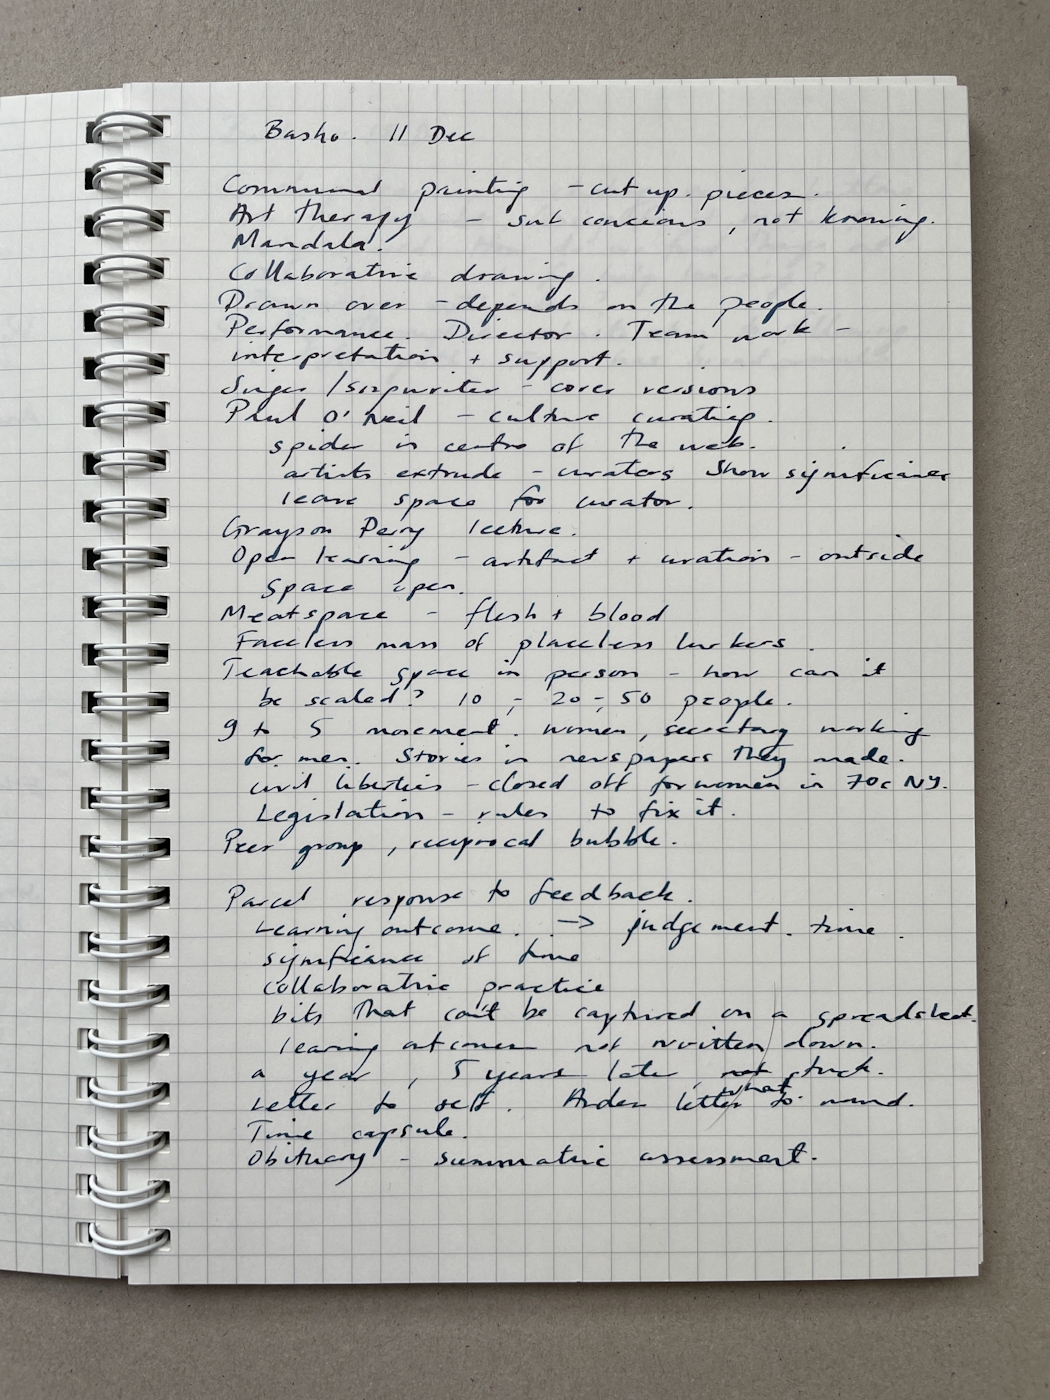 Basho. 11 Dec
Communal painting - cut up. pieces.
Art therapy - sub concious, not knowing.
Mandala.
Collaborative drawing.
Drawn over - depends on the people.
Performance. Director. Team work -
interpretation + support.
Singer / songwriter - cover versions
Paul O'Neil - culture curating.
spider in centre of the web.
artists extrude - curators show significance
leave space for curator.
Grayson Perry lecture.
Open learning - artifact + curation - outside
space open.
Meatspace - flesh + blood
Faceless mass of placeless lurkers.
Teachable space in person - how can it
be scaled? 10, - 20 -, 50 people.
9 to 5 movement. women, secretary working
for men. Stories in newspapers they made.
civil liberties - closed off for women in 70s NY.
Legislation - rules to fix it.
Peer group, reciprocal bubble.
Parcel response to feedback.
Learning outcome. -> judgement. time.
significance of time
collaborative practice
bits that can't be captured on a spreadsheet.
learing outcomes not written down.
a year, 5 years later, what stuck.
Letter to self. letter to mand.
Time capsule.
Obituary - summative assessment.